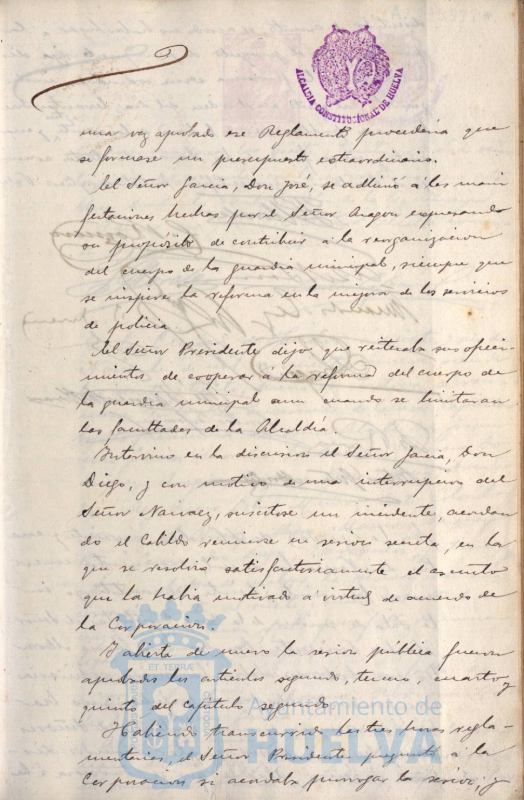 ALCALDIA CONSTITUCIONAL DE HUELVA
una vez aprobado ese Reglamento procederia que
se formase un presupuesto extraordinario.
El Señor Garcia, Don José, se adhirió á las mani
festaciones hechas por el Señor Aragon expresando
su propósito de contribuir á la reorganizacion
del cuerpo de la guardia municipal, siempre que
se inspire la reforma en la mejora de los servicios
de policia.
El Señor Presidente dijo que reiteraba sus ofreci-
mientos de cooperar á la reforma del cuerpo de
la guardia municipal aun cuando se limitaran
las facultades de la Alcaldía.
Intervino en la discusion el Señor Garcia, Don
Diego, y con motivo de una interrupcion del
Señor Narvaez, suscitose un incidente, acordan
do el Cabildo reunirse en sesion secreta, en la
que se resolvió satisfactoriamente el asunto
que la habia motivado á virtud de acuerdo de
la Corporacion.
Y abierta de nuevo la sesion pública fueron
aprobados los artículos segundo, tercero, cuarto y
quinto del capitulo segundo.
Habiendo transcurrido las tres horas regla-
mentarias, el Señor Presidente preguntó á la
Corporacion si acordaba prorrogar la sesion; y
Ayuntamiento de
HUELVA